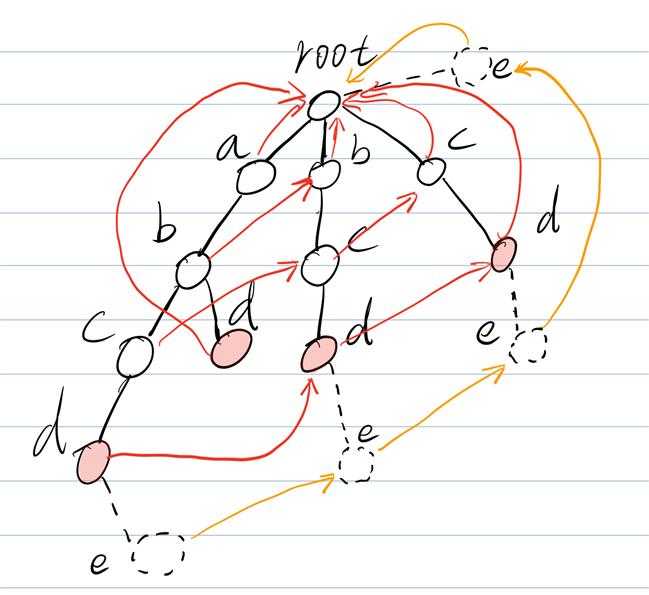 root
e
a
b
c
b
c
d
c
d
d
e
d
e
e